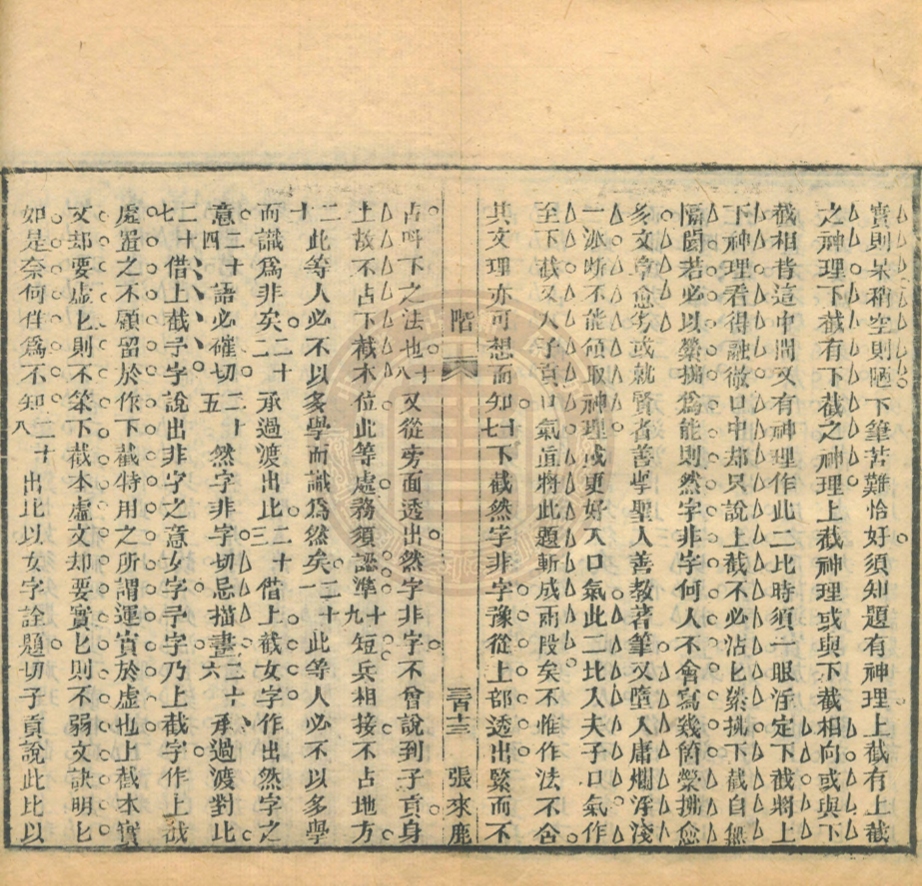 實則呆稍空則陋下筆苦難恰好須知題有神理上截有上截
之神理下截有下截之神理上截神理或與下截相向或與下
截相背這中間又有神理作此二比時須一眼渟定下截將上
下神理看得融徹口中却只說上截不必沾匕縈拂下截自無
隔閡若必以縈拂為能則然字非字何人不會寫幾箇縈拂愈
多文章愈劣或就賢者善學聖人善教著筆又墮入庸爛浮淺
一派斷不能領取神理或更好入口氣此二比入夫子口氣作
至下截又入子貢口氣直將此題斬成兩段矣不惟作法不合
其文理亦可想而知十七下截然字非字豫從上部透出緊而不
階 三百十三 張來鹿
占呌下之法也十八又從旁面透出然字非字不曾說到子貢身
上故不占下截本位此等處務須認準十九短兵相接不占地方
二十此等人必不以多學而識為然矣二十一此等人必不以多學
而識為非矣二十二承過渡出比二十三借上截女字作出然字之
意二十四語必確切二十五然字非字切忌描畫二十六承過渡對比
二十七借上截予字說出非字之意女字予字乃上截字作上截
處置之不顧留於作下截特用之所謂運實於虛也上截本實
文却要虛匕則不笨下截本虛文却要實匕則不弱文訣明匕
如是奈何佯為不知二十八出比以女字詮題切子貢說此比以